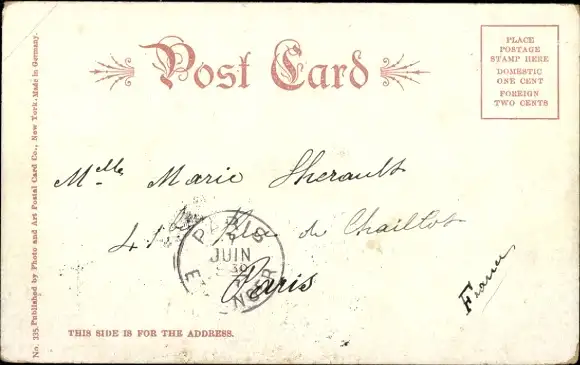 Post Card
PLACE
POSTAGE
STAMP HERE
DOMESTIC
ONE CENT
FOREIGN
TWO CENTS
Melle Marie Sherault
41 bis Rue de Chaillot
Paris
France
PARIS
JUIN
No. 335. Published by Photo and Art Postal Card Co., New York. Made in Germany.
THIS SIDE IS FOR THE ADDRESS.